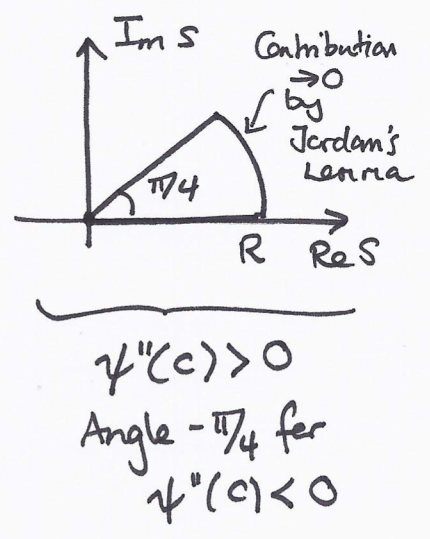 Im s
Contribution
→0
by
Jordan's
Lemma
π/4
R
Re s
ψ''(c) > 0
Angle -π/4 for
ψ''(c) < 0